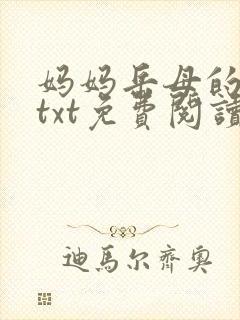 妈妈岳母的
txt免費閱讀
迪馬尔齊奥